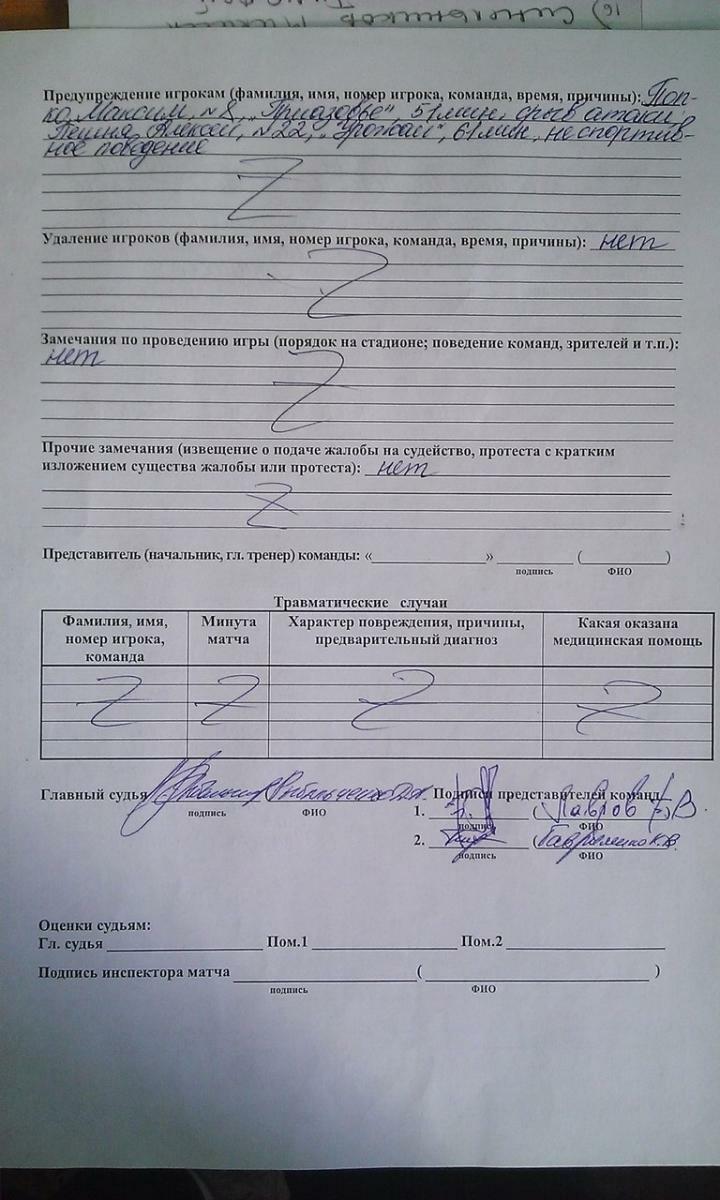 16) Синельников Михаил
Предупреждение игрокам (фамилия, имя, номер игрока, команда, время, причины): Поп-
ко Максим, №8, „Приазовье“, 51 мин, срыв атаки;
Алексей, №22, „Урожай“, 61 мин, не спортив-
ное поведение
Удаление игроков (фамилия, имя, номер игрока, команда, время, причины): нет
Замечания по проведению игры (порядок на стадионе; поведение команд, зрителей и т.п.):
нет
Прочие замечания (извещение о подаче жалобы на судейство, протеста с кратким
изложением существа жалобы или протеста): нет
Представитель (начальник, гл. тренер) команды: «__________» __________ (__________)
подпись ФИО
Травматические случаи
Фамилия, имя, номер игрока, команда
Минута матча
Характер повреждения, причины, предварительный диагноз
Какая оказана медицинская помощь
Главный судья Рыбальченко
подпись ФИО
Подписи представителей команд
1. (Лавров В)
подпись ФИО
2. (Гавриленко К.В.
подпись ФИО
Оценки судьям:
Гл. судья __________ Пом.1 __________ Пом.2 __________
Подпись инспектора матча __________ (__________)
подпись ФИО